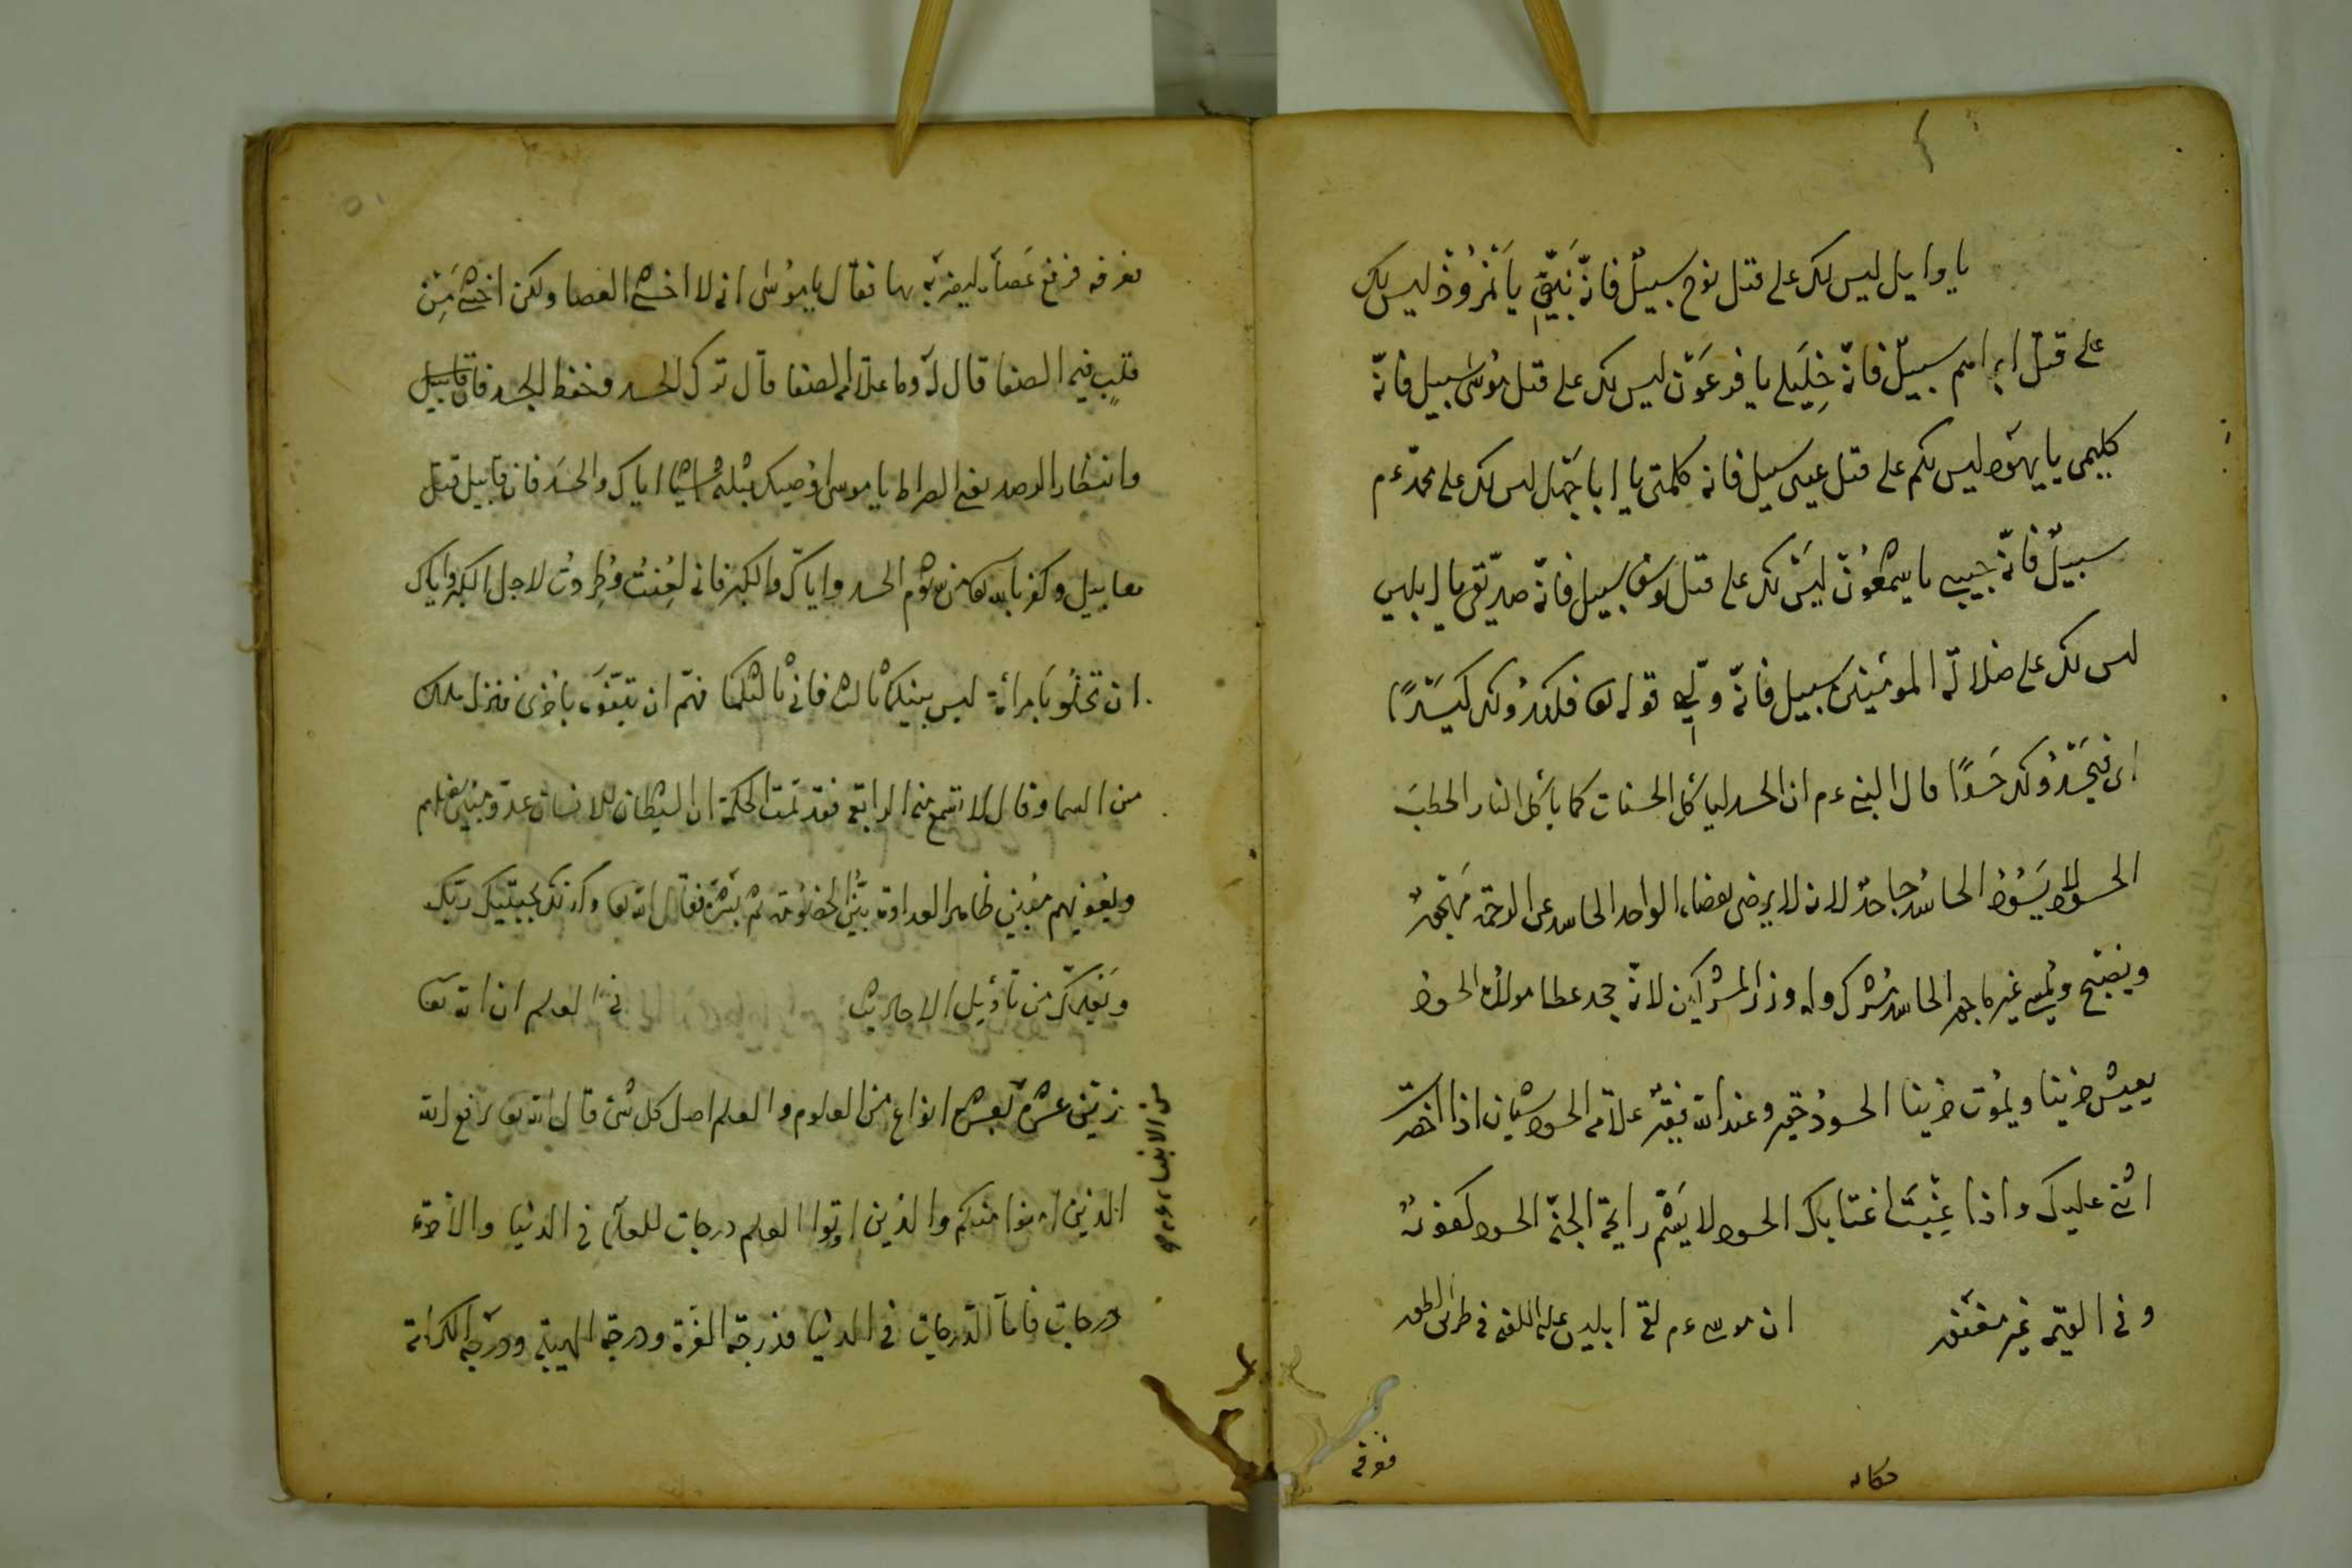 يا وايل ليس لك على قتل نوح سبيل فانّه نَبَيّي يا نَمْرُوذ ليس لك
على قتل ابراهيم سبيل فانّه خِليلي يا فرعَون ليس لك على قتل موُسى سبيل فانّه
كليمى يا يهود ليس لكم على قتل عيسى سبيل فانه كلمتى يا ابا جَهل ليس لك على محمّد ءم
سبيل فانّه حبيبى يا شمعُون ليسَ لك على قتل يوسف سبيل فانّه صدّيقى يا ابليس
ليس لك على ضلالة المومنين سبيل فانّه وليّى قوله تعا فيكيدُوا لك كَيْدًا
اى فيَحسدُوا لك حَسَدًا قال النبى ءم ان الحسد ليأكل الحسنات كما يأكل النار الحطبَ
الحسود لا يَسُود الحاسد جاحدٌ لانه لا يرضى بقضاء الواحد الحاسد عن الرحمة مَهجُور
ويصبح ويُمسى غير ماجور الحاسد مُشرك وله وزر المشركين لانّه جحد عطا مولاه الحسود
يعيش حزينا ويمُوت حزينا الحسودُ حقير وعند الله فقير علامة الحسود شيئان اذا احضرت
اثنى عليك واذا غِبْتَ اغتابك الحسود لا يَشَمّ رايحة الجنّة الحسود
وفى القيمة غير مغفور ان موسى ءم لقى ابليس عليه اللعنة فى طريق الطور
فعرفه
حكايه
فعرفه فرفع عَصاه ليضربَه بها فقال يا موُسى انى لا اخشى العصا ولكن اخشى مِن
قلبٍ فيه الصفا قال لَه وما علامة الصفا قال ترك الحسد وحفظ الجسد
وانتظار الرصد يعنى الصراط يا موسى اوُصيك بثلثة اشيا اياك والحسَد فان قابيل قتل
هابيل وكفر بالله تعا من شُوم الحسد واياكَ والكبر فانى لُعِنتُ وطُرِدتُ لاجل الكبر واياك
ان تخلُو بامرأة ليس بينكما ثالث فانى ثالثكما فهمّ ان يتفوّه باخرى فنزل ملك
من السما وقال لا تسمع منه الرابعة فقد تمت الحكمة ان الشيطان للانسان عدوّ مبين
ظاهر العداوة بيّن الخصُومة ثم بَشّرَه فقال الله تعا وكذلك يجتبيك ربّك
ويُعلّمكَ من تأويل الاحاديث فى العلم ان الله تعا
زيّن عشرة بعشرة انواع من العلوم والعلم اصل كل شئ قال الله تعا يرفع الله
الذين امنوا منكم والذين اوتوا العلم درجات للعلماء فى الدنيا والاخرة
درجات فامّا الدّرجات فى الدنيا فدرجة العزّة ودرجة الهيبة ودرَجة الكرامة
من الانبياء ءم